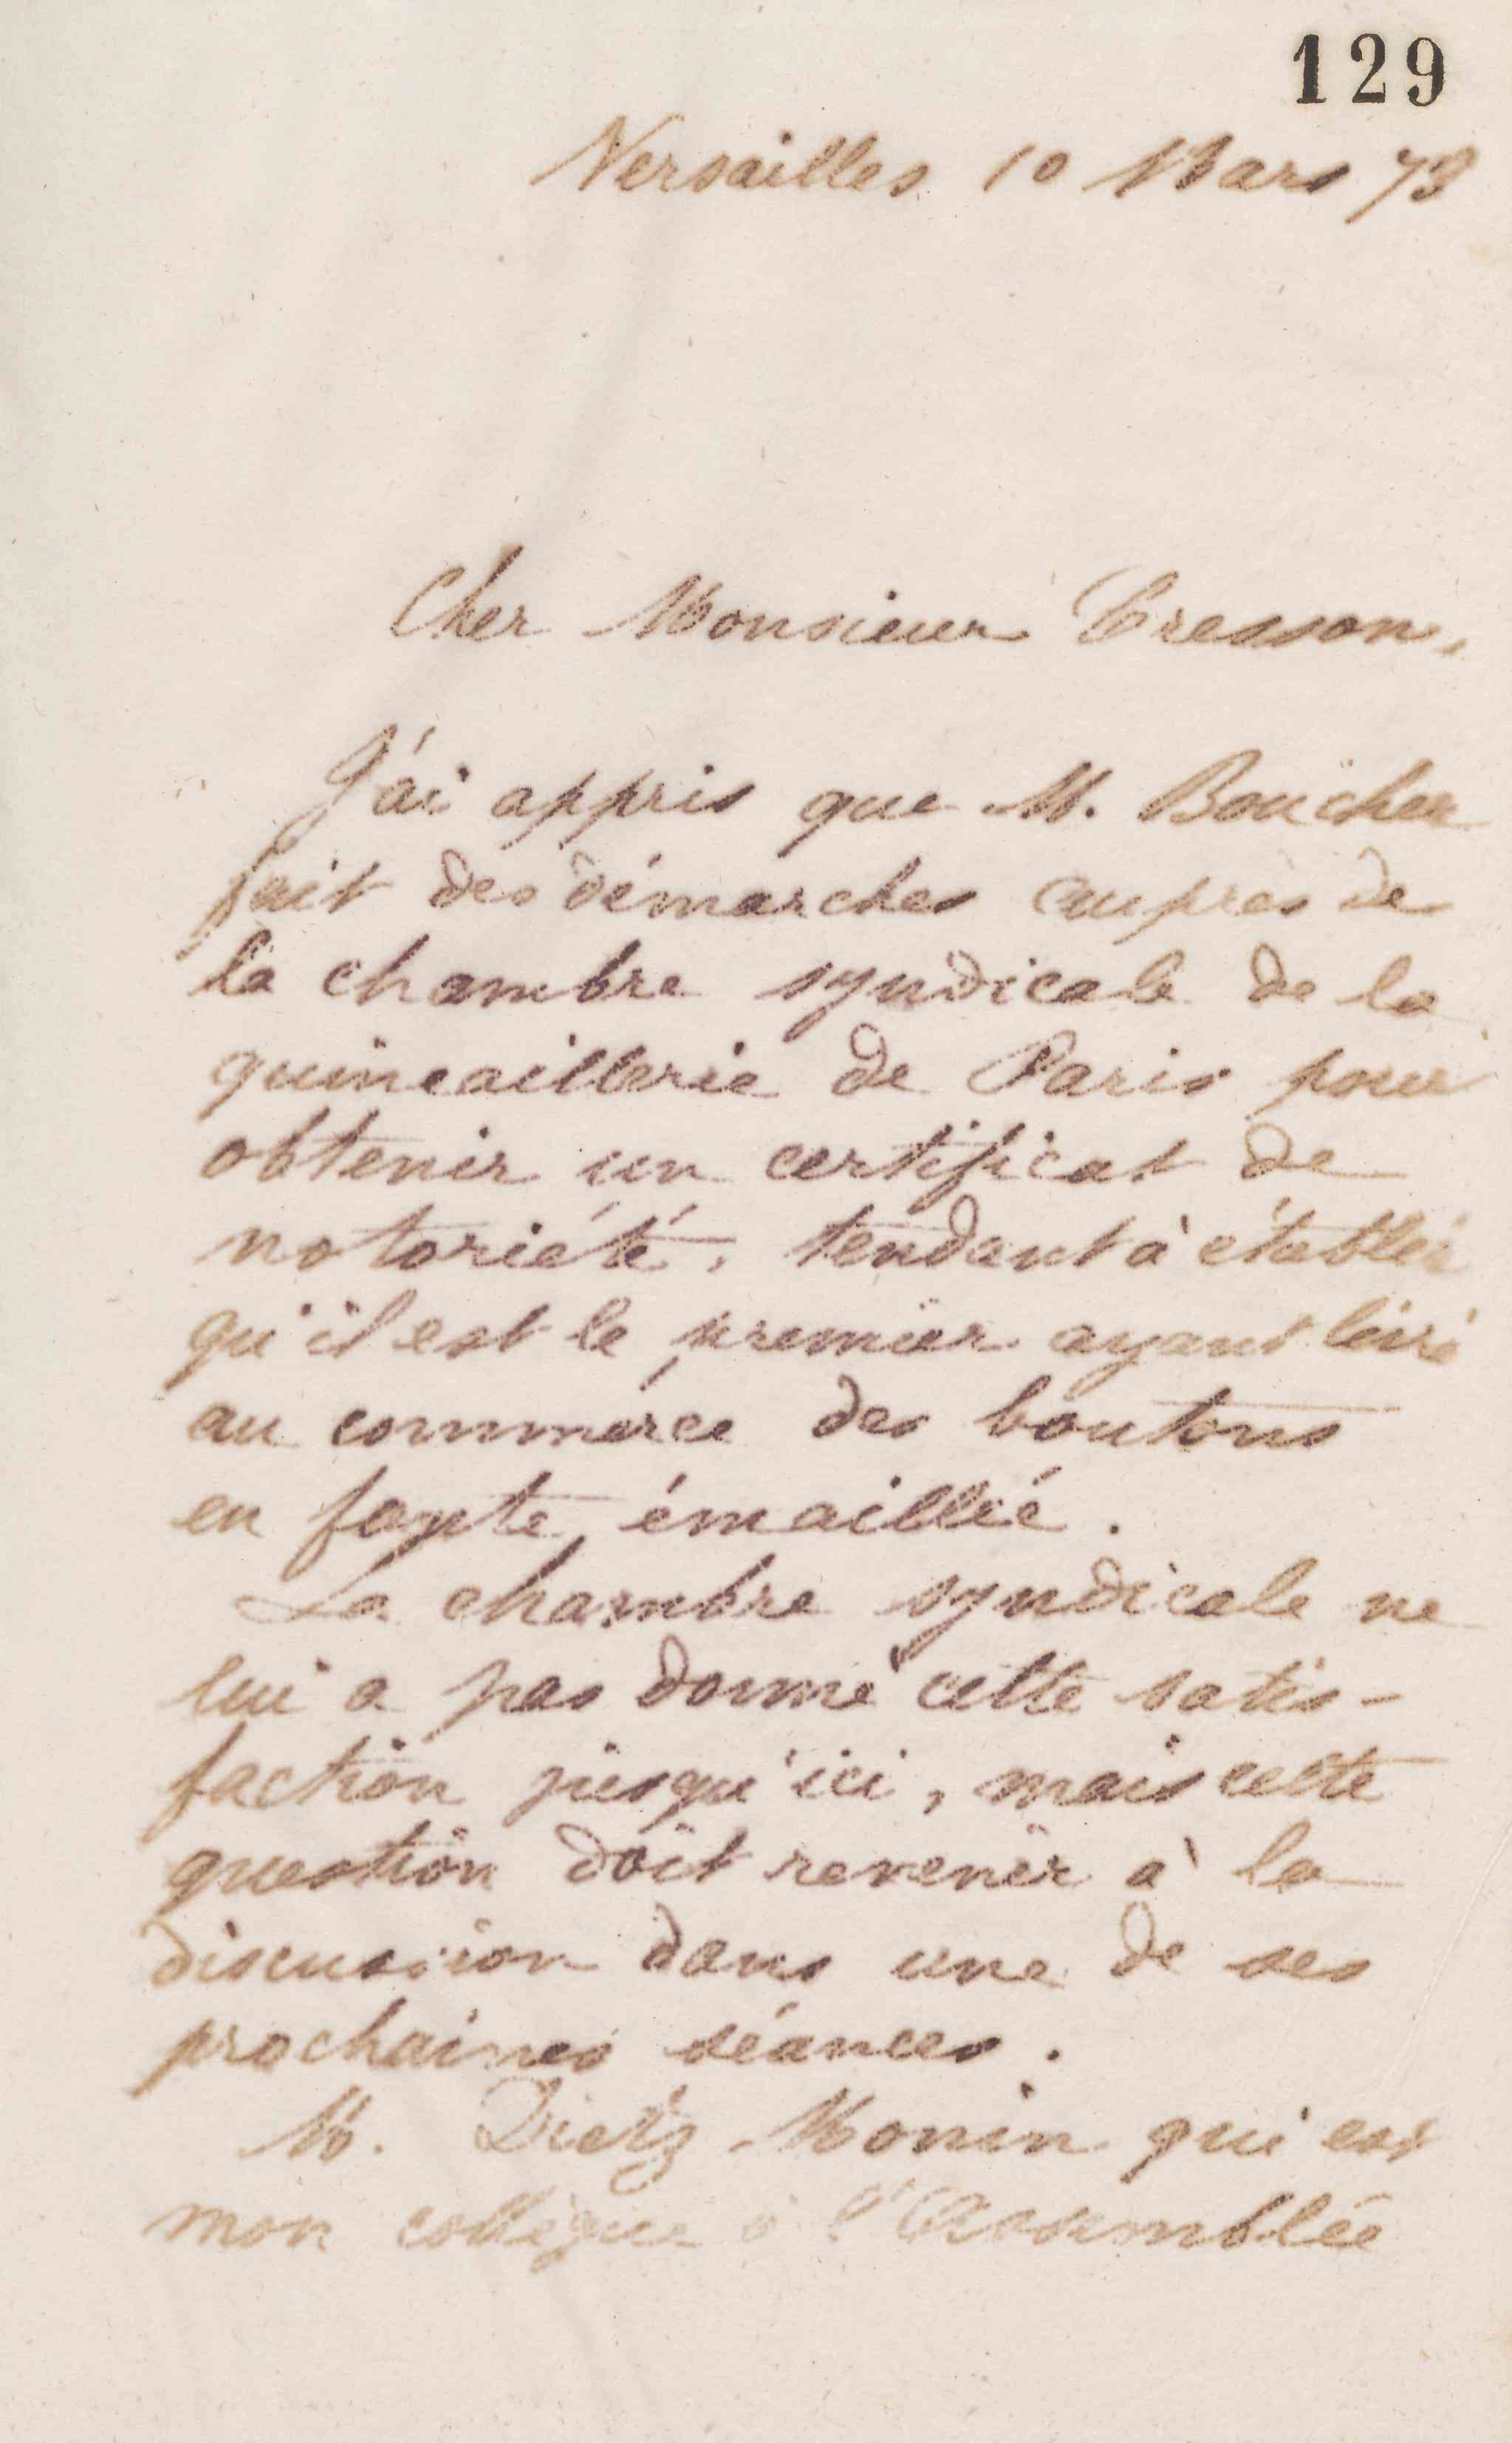 129
Versailles 10 Mars 73
Cher Monsieur Cresson,
J'ai appris que M. Boucher
fait des démarches auprès de
la chambre syndicale de la
quincaillerie de Paris pour
obtenir un certificat de
notoriété, tendant à établir
qu'il est le premier ayant livré
au commerce des boutons
en fonte émaillée.
La chambre syndicale ne
lui a pas donné cette satis-
faction jusqu'ici, mais cette
question doit revenir à la
discussion dans une de ses
prochaines séances.
M. Dietz Monin qui est
mon collègue à l'Assemblée